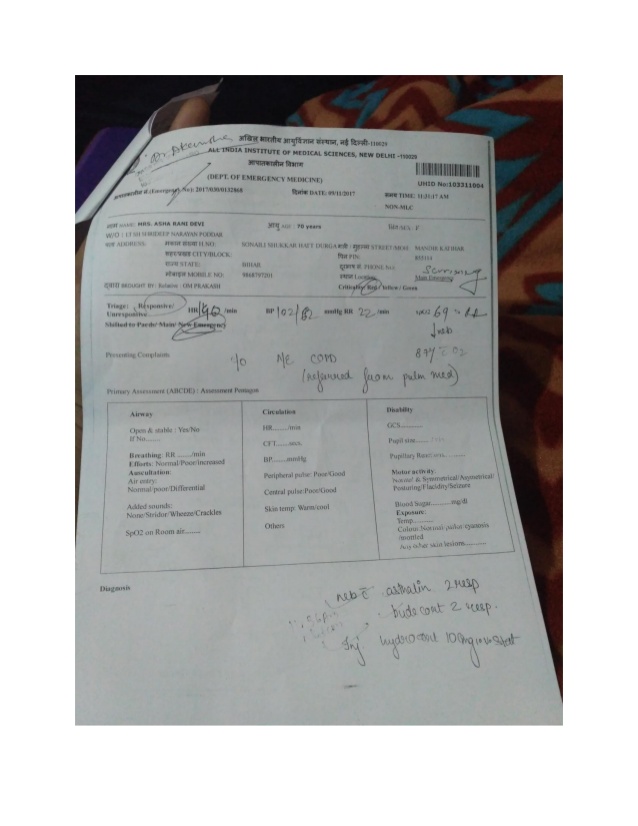 Dr. Akanksha
अखिल भारतीय आयुर्विज्ञान संस्थान, नई दिल्ली-110029
ALL INDIA INSTITUTE OF MEDICAL SCIENCES, NEW DELHI -110029
आपातकालीन विभाग
(DEPT. OF EMERGENCY MEDICINE)
UHID No:103311004
(Emergency No): 2017/030/0132868
दिनांक DATE: 09/11/2017
समय TIME: 11:31:17 AM
NON-MLC
NAME: MRS. ASHA RANI DEVI
आयु AGE : 70 years
लिंग/SEX : F
W/O : LT SH SHRIDEEP NARAYAN PODDAR
पता ADDRESS: मकान संख्या H.NO: SONAILI SHUKKAR HATT DURGA गली / मुहल्ला STREET/MOH MANDIR KATIHAR
शहर/ब्लॉक CITY/BLOCK: पिन PIN: 855114
राज्य STATE: BIHAR दूरभाष सं. PHONE No.:
मोबाइल MOBILE NO: 9868797201 स्थान Location: Main Emergency
BROUGHT BY: Relative : OM PRAKASH Criticality: Red / Yellow / Green
Triage: Responsive/ HR 140 /min BP 102/82 mmHg RR 22 /min 69 % RA
Unresponsive
Shifted to Paeds/ Main/ New Emergency
neb
Presenting Complaints c/o COPD 87% c̄ O2
(referred from pulm med)
Primary Assessment (ABCDE) : Assessment Pentagon
Airway
Open & stable : Yes/No
If No.......
Breathing: RR ......./min
Efforts: Normal/Poor/increased
Auscultation:
Air entry:
Normal/poor/Differential
Added sounds:
None/Stridor/Wheeze/Crackles
SpO2 on Room air.......
Circulation
HR........./min
CFT.......sec.
BP.......mmHg
Peripheral pulse: Poor/Good
Central pulse:Poor/Good
Skin temp: Warm/cool
Others
Disability
GCS..........
Pupil size......
Pupillary Reactions...........
Motor activity:
Normal & Symmetrical/Asymetrical/
Posturing/Flacidity/Seizure
Blood Sugar...........mg/dl
Exposure:
Temp..........
Colour Normal/pallor/cyanosis
/mottled
Any other skin lesions...........
Diagnosis
neb c̄ asthalin 2 resp
budecort 2 resp.
Inj hydrocort 100mg iv stat